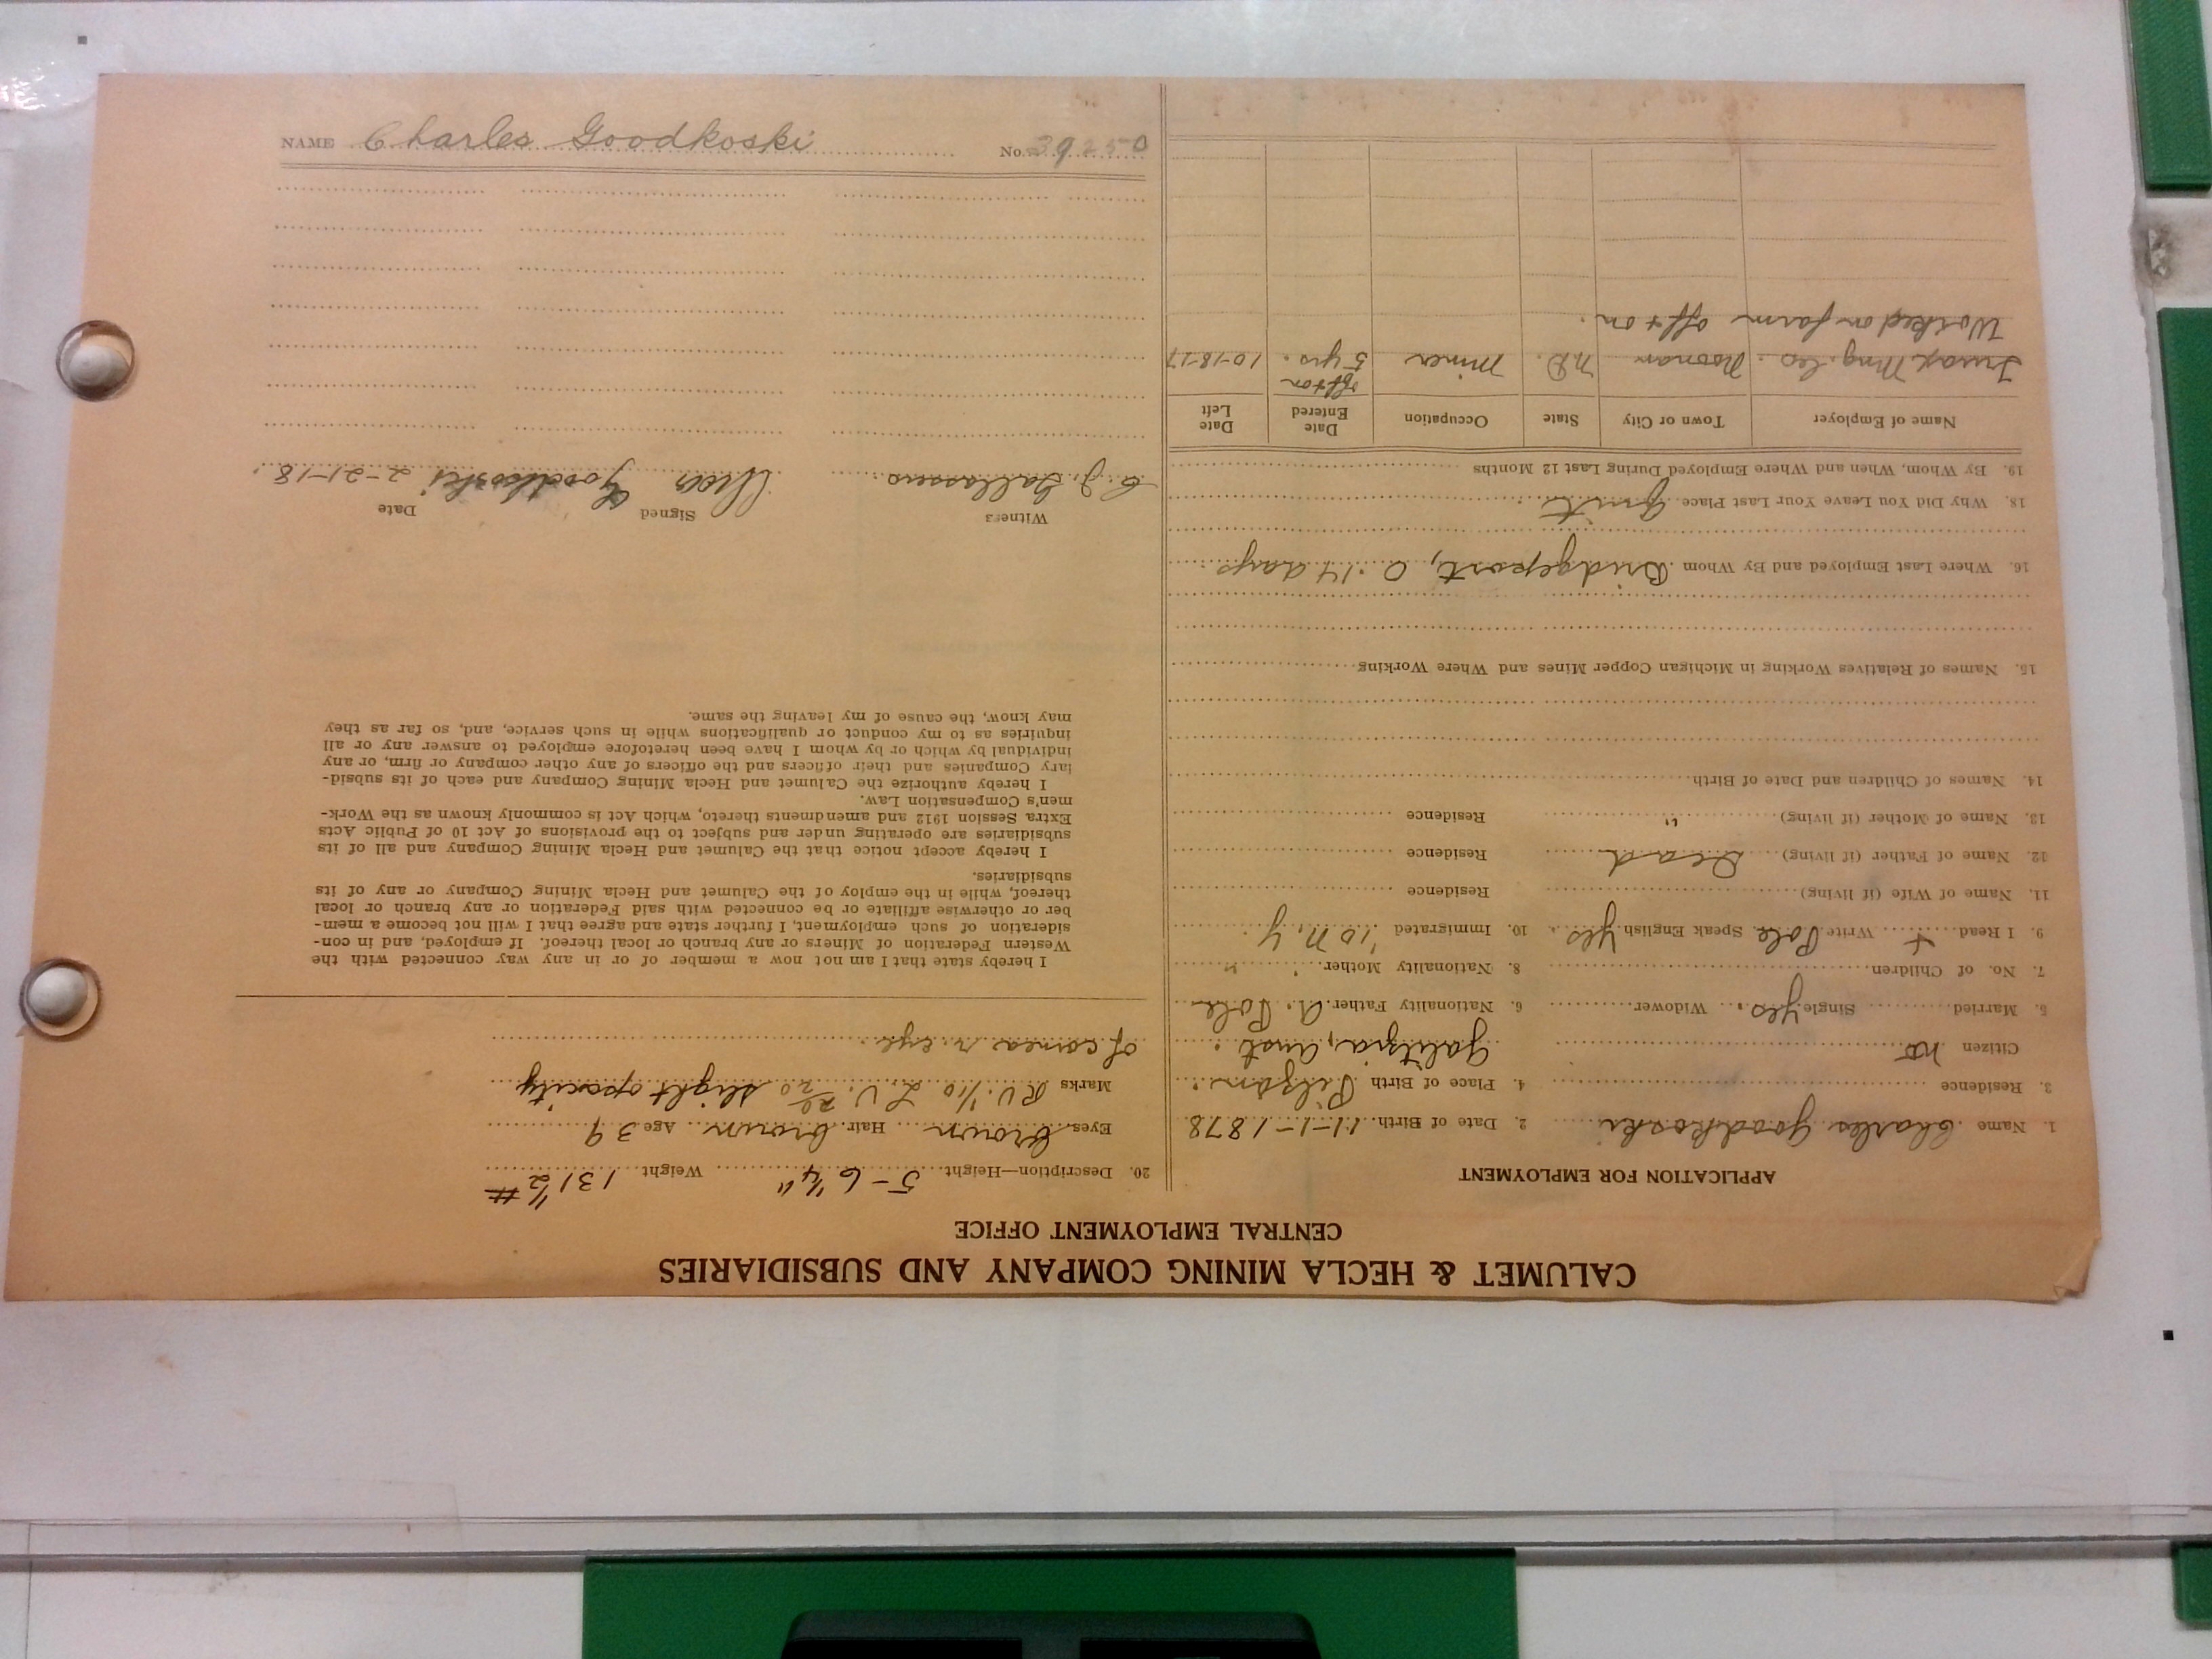 CALUMET & HECLA MINING COMPANY AND SUBSIDIARIES
CENTRAL EMPLOYMENT OFFICE
APPLICATION FOR EMPLOYMENT
1. Name Charles Goodkoski 2. Date of Birth 11-1-1878
3. Residence 4. Place of Birth
Citizen no Galitzia, Aust.
5. Married Single yes. Widower 6. Nationality Father A. Pole
7. No. of Children 8. Nationality Mother " "
9. I Read + Write Pole Speak English yes 10. Immigrated '10 N.Y.
11. Name of Wife (if living) Residence
12. Name of Father (if living) Dead Residence
13. Name of Mother (if living) " Residence
14. Names of Children and Date of Birth
15. Names of Relatives Working in Michigan Copper Mines and Where Working
16. Where Last Employed and By Whom Bridgeport, O. 14 days
18. Why Did You Leave Your Last Place Quit
19. By Whom, When and Where Employed During Last 12 Months
Name of Employer Town or City State Occupation Date Entered Date Left
off + on
Truax Mng. Co. Noonan N.D. Miner 5 yrs. 10-18-17
Worked on farm off + on.
20. Description—Height 5-6 1/4" Weight 131 1/2 #
Eyes brown Hair brown Age 39
Marks R.V. 1/10 L.V. 20/20 slight opacity
of cornea r. eye.
I hereby state that I am not now a member of or in any way connected with the
Western Federation of Miners or any branch or local thereof. If employed, and in con-
sideration of such employment, I further state and agree that I will not become a mem-
ber or otherwise affiliate or be connected with said Federation or any branch or local
thereof, while in the employ of the Calumet and Hecla Mining Company or any of its
subsidiaries.
I hereby accept notice that the Calumet and Hecla Mining Company and all of its
subsidiaries are operating under and subject to the provisions of Act 10 of Public Acts
Extra Session 1912 and amendments thereto, which Act is commonly known as the Work-
men's Compensation Law.
I hereby authorize the Calumet and Hecla Mining Company and each of its subsid-
iary Companies and their officers and the officers of any other company or firm, or any
individual by which or by whom I have been heretofore employed to answer any or all
inquiries as to my conduct or qualifications while in such service, and, so far as they
may know, the cause of my leaving the same.
Witness Signed Date
Chas Goodkoski 2-21-18.
NAME Charles Goodkoski No. 39250